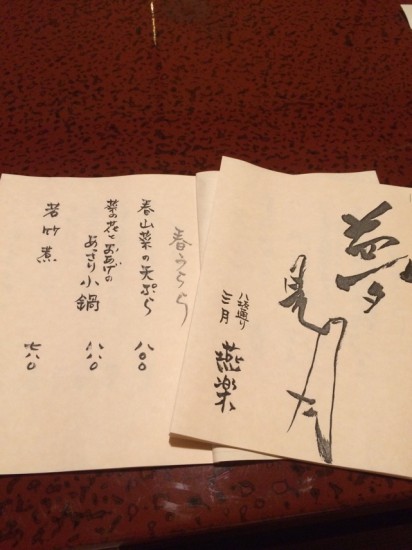 夢
見月
八坂通り
三月 燕楽
春うらら
春山菜の天ぷら 八〇〇
菜の花とおあげの
あっさり小鍋 八八〇
若竹煮 七八〇